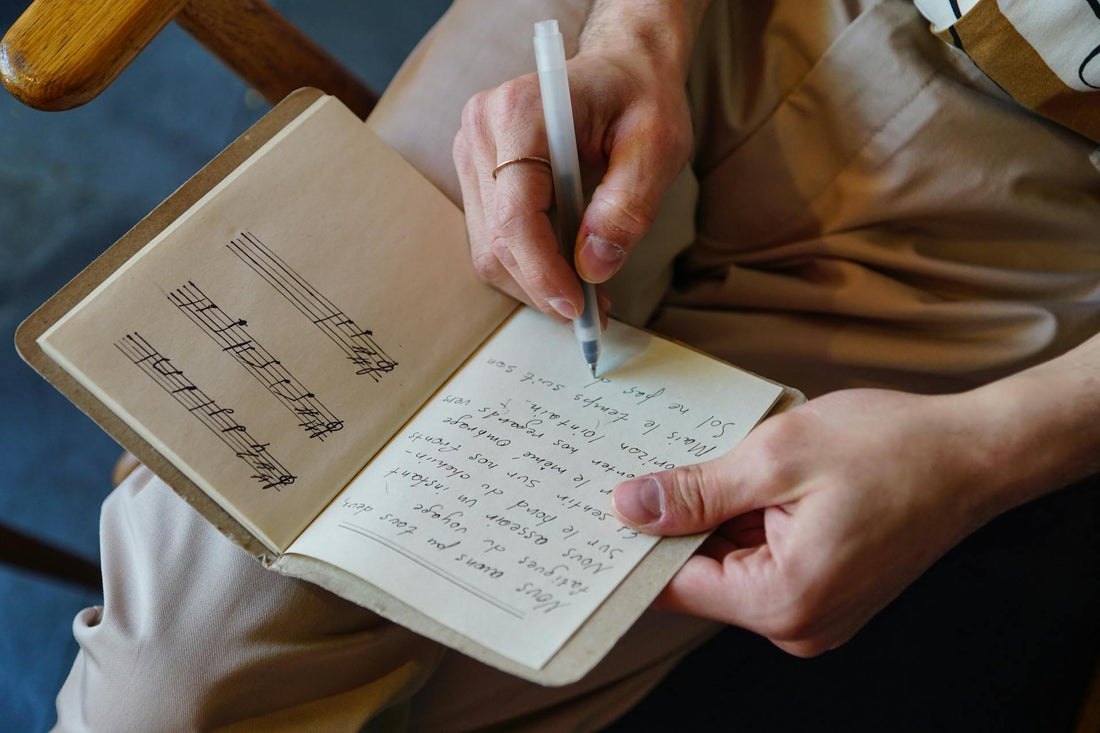 Nous avions pu tous deux,
fatigués du voyage
Nous asseoir un instant
sur le bord du chemin-
sentir sur nos fronts
même ombrage
nos regards vers
lointain.
Mais le temps suit son
Sol ne pas d